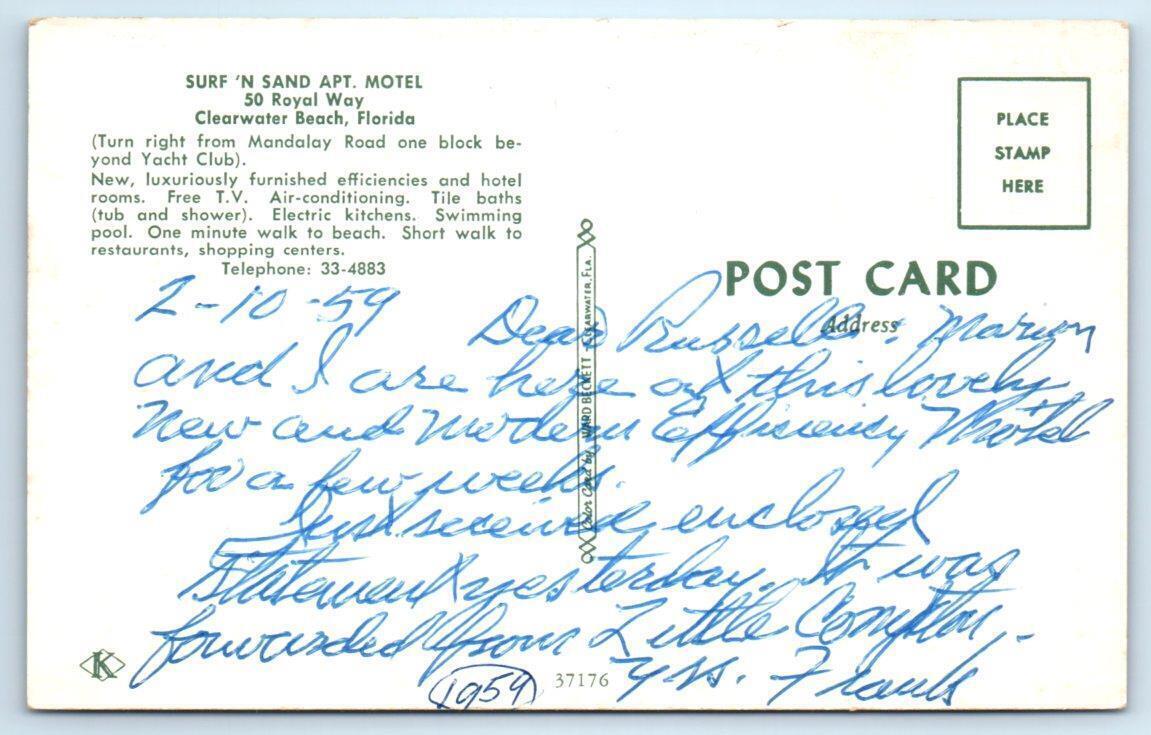 SURF 'N SAND APT. MOTEL
50 Royal Way
Clearwater Beach, Florida
(Turn right from Mandalay Road one block be-
yond Yacht Club).
New, luxuriously furnished efficiencies and hotel
rooms. Free T.V. Air-conditioning. Tile baths
(tub and shower). Electric kitchens. Swimming
pool. One minute walk to beach. Short walk to
restaurants, shopping centers.
Telephone: 33-4883
PLACE
STAMP
HERE
POST CARD
Address
Color Card by WARD BECKETT CLEARWATER, FLA.
2-10-59
Dear Russell: Marion
and I are here at this lovely
New and Modern Efficiency Motel
for a few weeks.
Just received enclosed
Statement yesterday. It was
forwarded from Little Compton,-
Frank
K
1959
37176